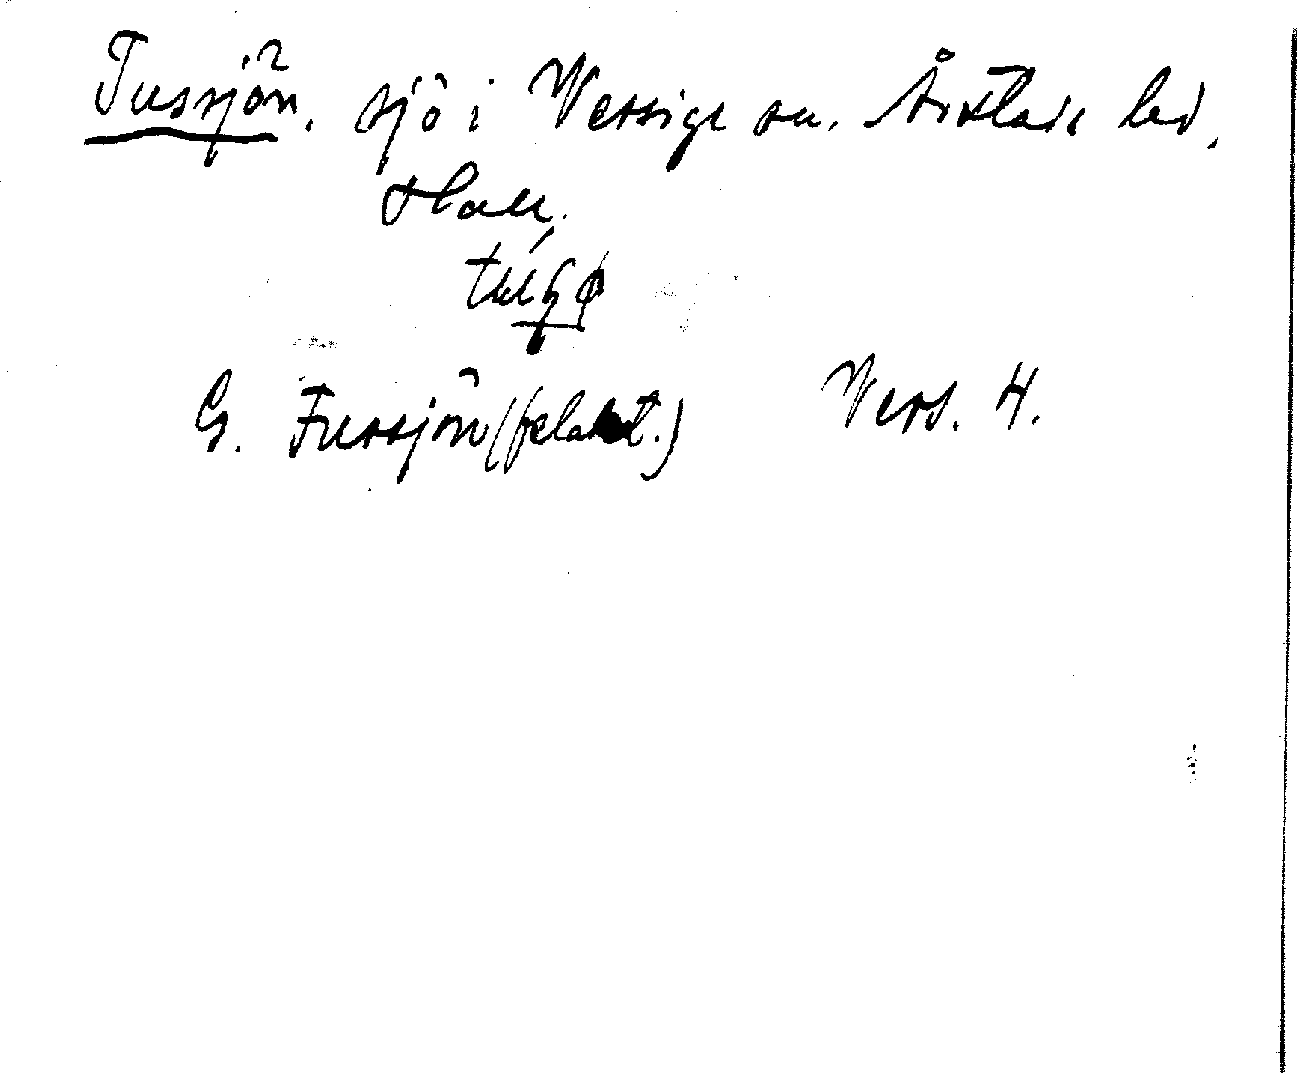 Tussjön, sjö i Vessige sn. Årstads hd,
Hall.
G. Fussjön (felakt.) Vess. 4.